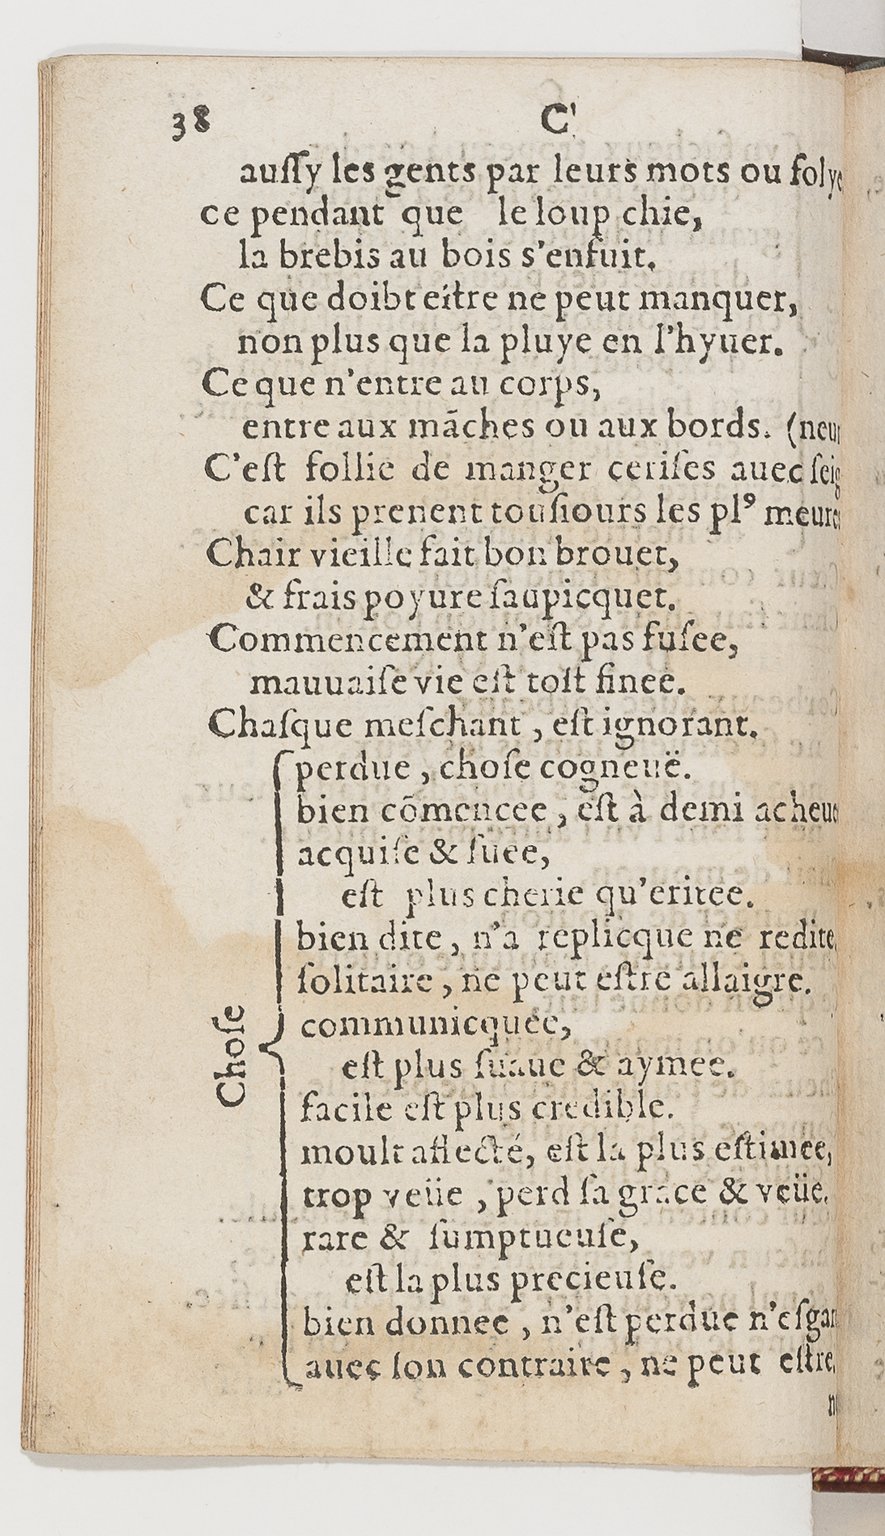 38 C
auſſy les gents par leurs mots ou folye
ce pendant que le loup chie,
la brebis au bois s'enfuit.
Ce que doibt eſtre ne peut manquer,
non plus que la pluye en l'hyuer.
Ce que n'entre au corps,
entre aux mãches ou aux bords. (neur
C'eſt follie de manger ceriſes auec ſeig
car ils prenent touſiours les plꝰ meure
Chair vieille fait bon brouet,
& frais poyure ſaupicquet.
Commencement n'eſt pas fuſee,
mauuaiſe vie eſt toſt finee.
Chaſque meſchant, eſt ignorant.
Choſe
perdue, choſe cogneuë.
bien cõmencee, eſt à demi acheue
acquiſe & ſuee,
eſt plus cherie qu'eritee.
bien dite, n'a replicque ne redite,
ſolitaire, ne peut eſtre allaigre.
communicquée,
eſt plus ſuaue & aymee.
facile eſt plus credible.
moult affecté, eſt la plus eſtimee,
trop veüe, perd ſa grace & veüe.
rare & ſumptueuſe,
eſt la plus precieuſe.
bien donnee, n'eſt perdue n'eſgar
auec ſon contraire, ne peut eſtre,